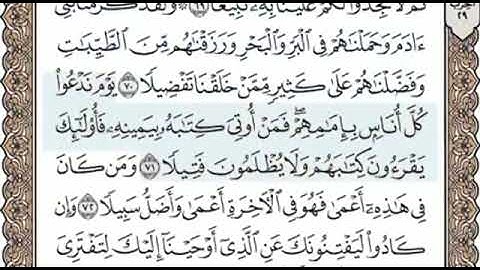 ثُمَّ لَا تَجِدُوا۟ لَكُمْ عَلَيْنَا بِهِۦ تَبِيعًا ٦٩ ۞ وَلَقَدْ كَرَّمْنَا بَنِىٓ
ءَادَمَ وَحَمَلْنَٰهُمْ فِى ٱلْبَرِّ وَٱلْبَحْرِ وَرَزَقْنَٰهُم مِّنَ ٱلطَّيِّبَٰتِ
وَفَضَّلْنَٰهُمْ عَلَىٰ كَثِيرٍ مِّمَّنْ خَلَقْنَا تَفْضِيلًا ٧٠ يَوْمَ نَدْعُوا۟
كُلَّ أُنَاسٍۭ بِإِمَٰمِهِمْ ۖ فَمَنْ أُوتِىَ كِتَٰبَهُۥ بِيَمِينِهِۦ فَأُو۟لَٰٓئِكَ
يَقْرَءُونَ كِتَٰبَهُمْ وَلَا يُظْلَمُونَ فَتِيلًا ٧١ وَمَن كَانَ
فِى هَٰذِهِۦٓ أَعْمَىٰ فَهُوَ فِى ٱلْءَاخِرَةِ أَعْمَىٰ وَأَضَلُّ سَبِيلًا ٧٢ وَإِن
كَادُوا۟ لَيَفْتِنُونَكَ عَنِ ٱلَّذِىٓ أَوْحَيْنَآ إِلَيْكَ لِتَفْتَرِىَ